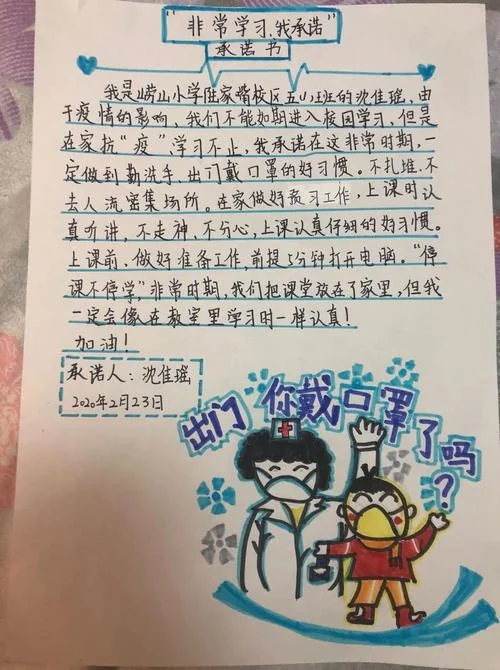 “非常学习,我承诺”
承诺书
我是崂山小学陆家嘴校区五(1)班的沈佳瑶,由
于疫情的影响,我们不能如期进入校园学习,但是
在家抗“疫”学习不止,我承诺在这非常时期,一
定做到勤洗手、出门戴口罩的好习惯。不扎堆、不
去人流密集场所。在家做好预习工作,上课时认
真听讲,不走神、不分心,上课认真仔细的好习惯。
上课前、做好准备工作,前提5分钟打开电脑。“停
课不停学”非常时期,我们把课堂放在了家里,但我
一定会像在教室里学习时一样认真!
加油!
承诺人:沈佳瑶
2020年2月23日
出门你戴口罩了吗?